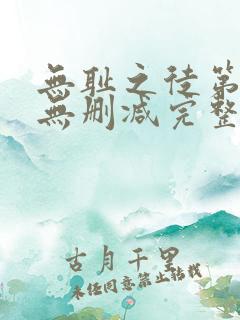 無耻之徒第
無删减完整
古月千里
未经同意禁止转载